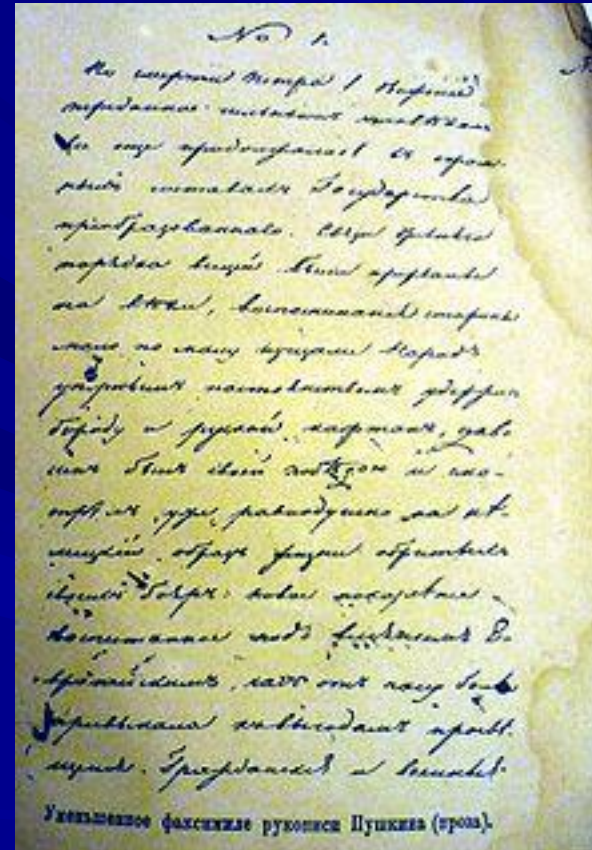 No 1.
По смерти Петра I движенiе
переданное сильнымъ человѣкомъ
все еще продолжалось въ огром-
ныхъ составахъ Государства
преобразованнаго. Связи древняго
порядка вещей были прерваны
на вѣки, воспоминанiя старины
мало по малу исчезали. Народъ
упорнымъ постоянствомъ удержавъ
бороду и русской кафтанъ, дово-
ленъ былъ своей побѣдою и смо-
трѣлъ уже равнодушно на нѣ-
мецкiй образъ жизни обритыхъ
своихъ бояръ. новое поколѣнiе
воспитанное подъ влiянiемъ Е-
вропейскимъ, часъ отъ часу болѣе
привыкало къ выгодамъ просвѣ-
щенiя. Гражданскiе и военные
Уменьшенное факсимиле рукописи Пушкина (проза).